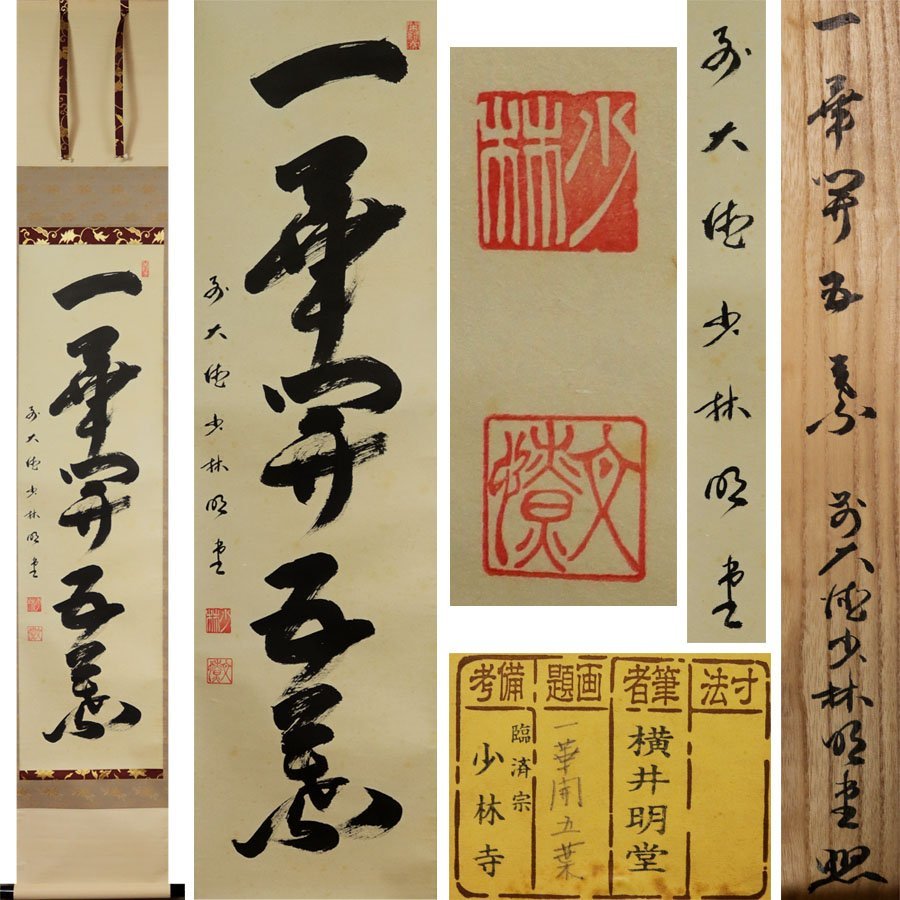 一華開五葉
前大徳少林明堂
一華開五葉
前大徳少林明堂
少林
文
前大徳少林明堂
一華開五葉 前大徳少林明堂
寸法
筆者
横井明堂
画題
一華開五葉
備考
臨済宗
少林寺